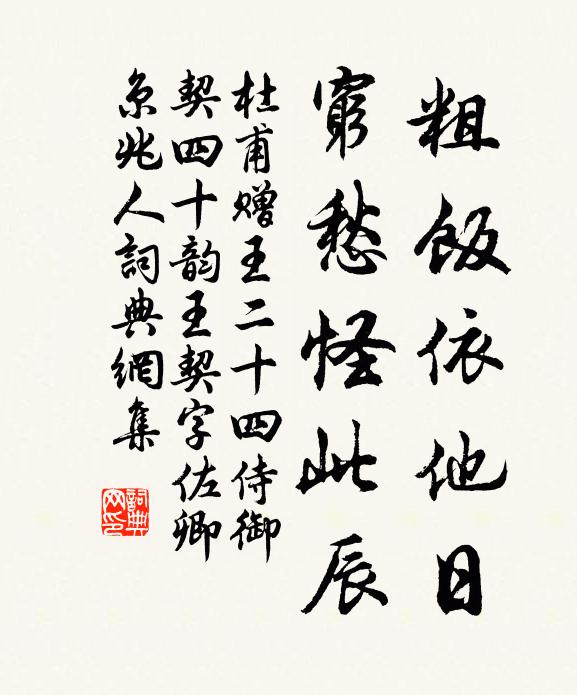 粗飯依他日
窮愁怪此辰
杜甫赠王二十四侍御
契四十韵王契字佐卿
京兆人詞典網集
詞典网印